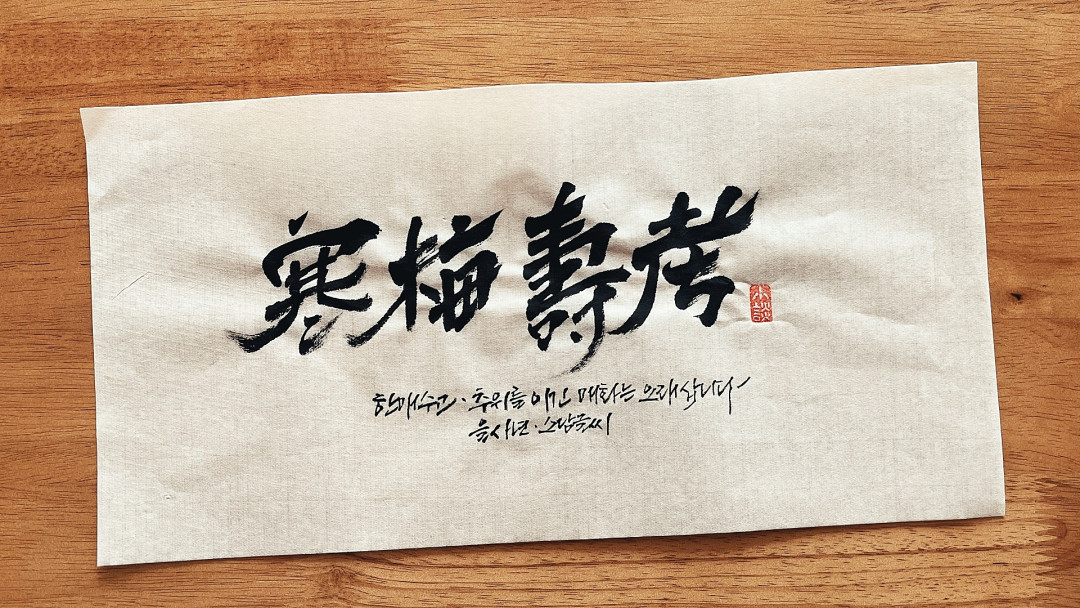 寒梅壽考
小談
한매수고 · 추위를 이긴 매화는 오래 삽니다
을사년 · 소담글씨